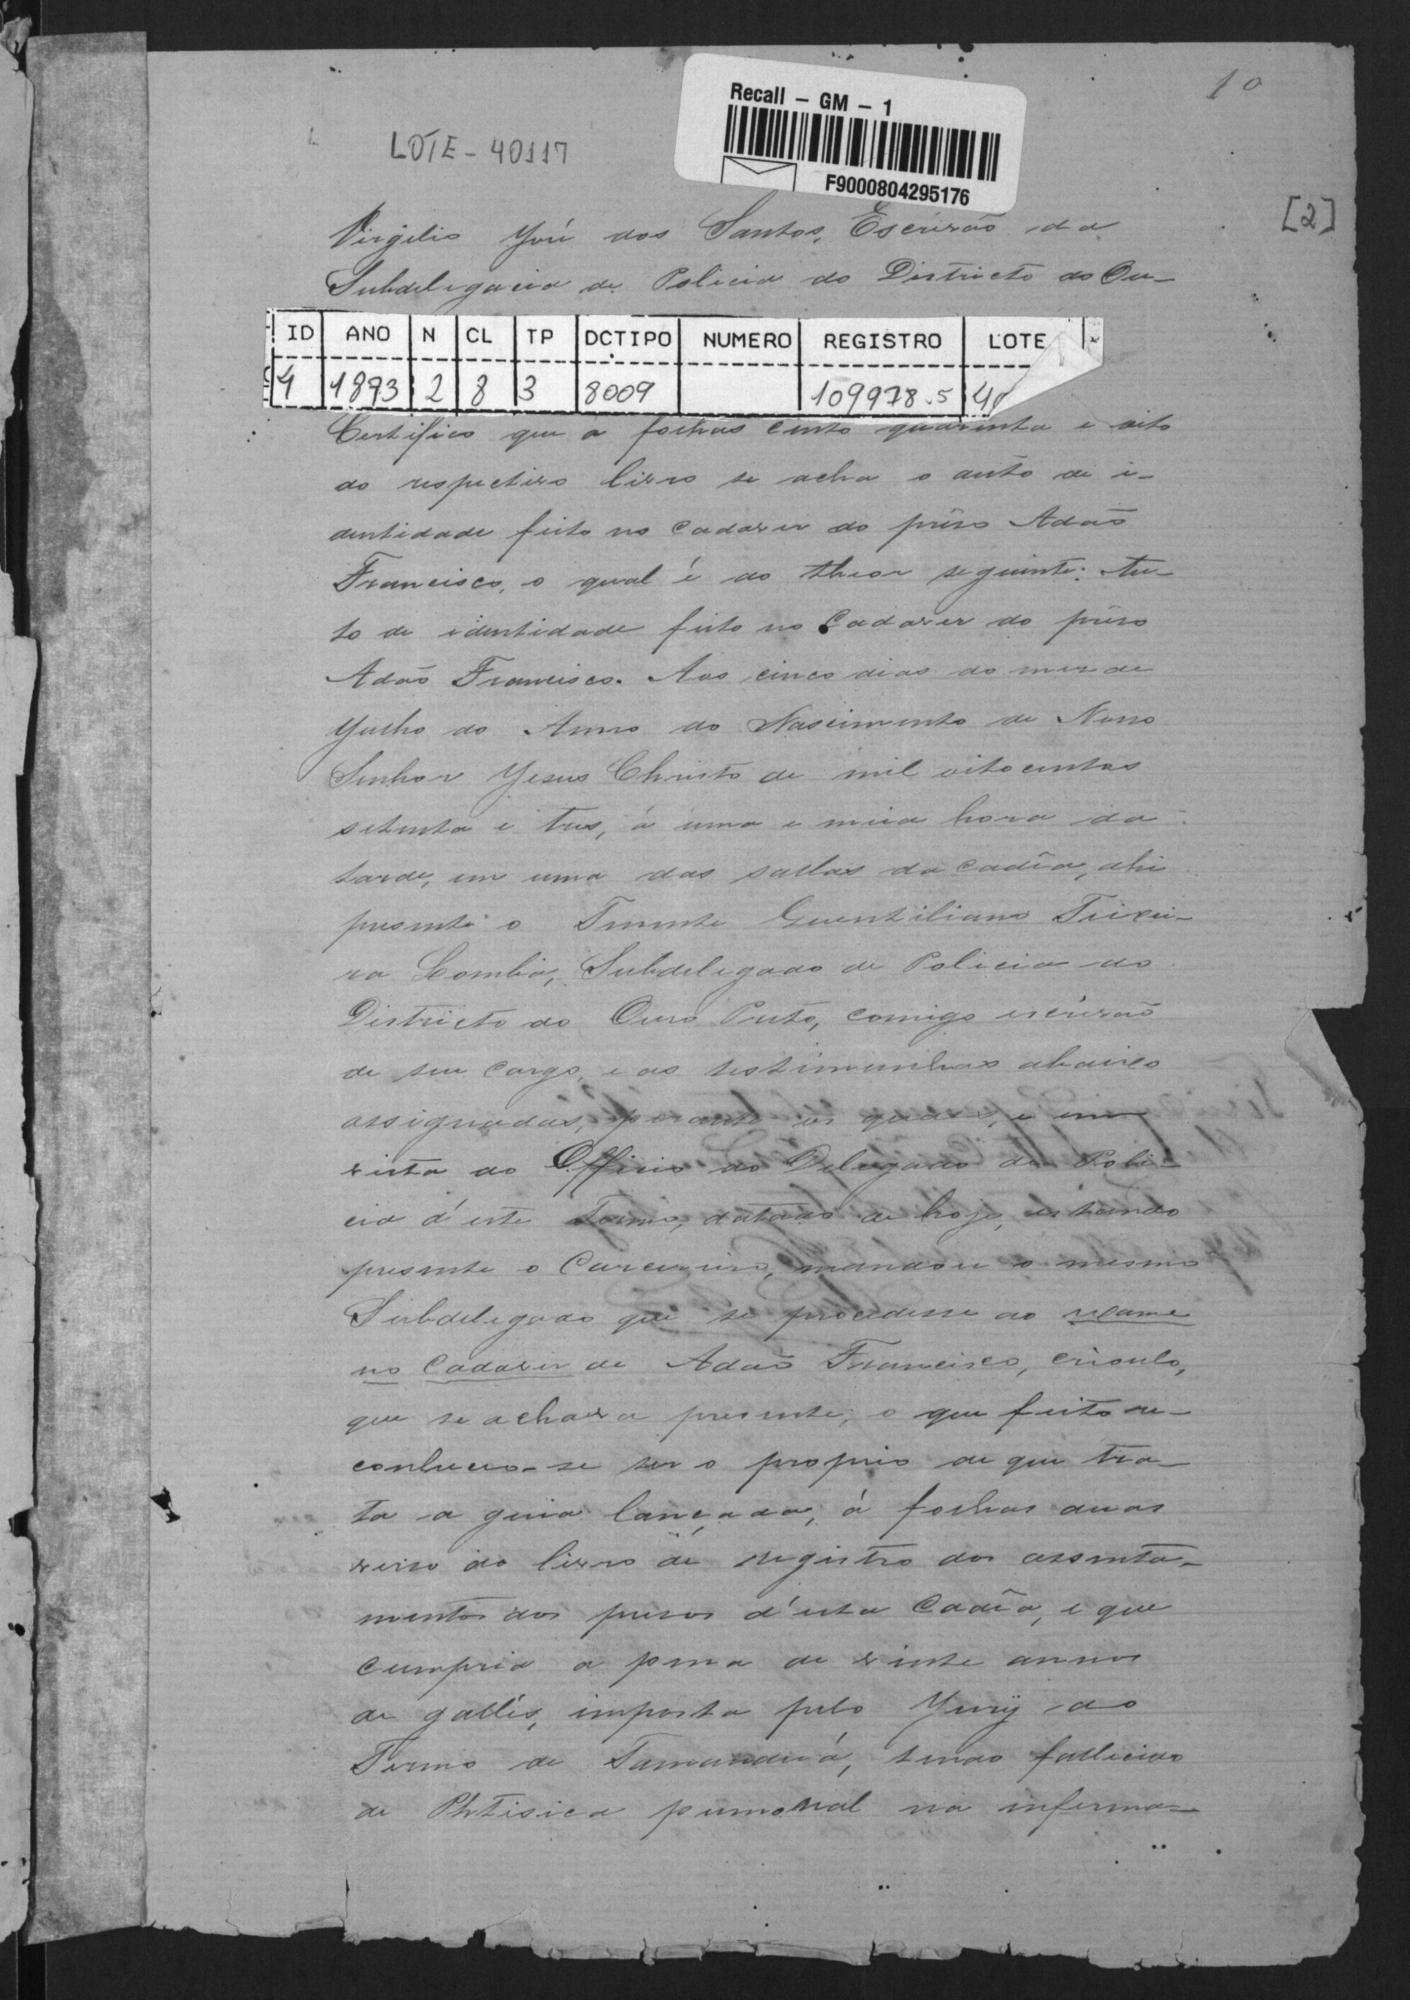 10
Recall - GM - 1
F9000804295176
LOTE - 40117
[2]
Virgilio José dos Santos, Escrivão da
Subdelegacia de Policia do Districto do Ou-
ID ANO N CL TP DCTIPO NUMERO REGISTRO LOTE
4 1893 2 8 3 8009 109978.5 40
Certifico que a folhas cento quarenta e oito
do respectivo livro se acha o auto de i-
dentidade feito no cadaver do prêso Adaõ
Francisco, o qual é do theor seguinte: Au-
to de identidade feito no Cadaver do prêso
Adaõ Francisco. Aos cinco dias do mez de
Julho do Anno do Nascimento de Nosso
Senhor Jesus Christo de mil oitocentos
setenta e tres, á uma e meia hora da
tarde, em uma das sallas da cadêa, ahi
presente o Tenente Quentiliano Teixei-
ra Lomba, Subdelegado de Policia do
Districto do Ouro Preto, comigo escrivaõ
de seu cargo, e as testimunhas abaixo
assignadas, perante as quaes, e em
vista do Officio do Delegado de Poli-
cia d'este Termo, datado de hoje, estando
presente o Carcereiro, mandou o mesmo
Subdelegado que se procedesse ao exame
no Cadaver de Adaõ Francisco, crioulo,
que se achava presente; o que feito re-
conheceo-se ser o proprio de que tra-
ta a guia lançada, á folhas duas
verso do livro de registro dos assenta-
mentos dos presos d'esta Cadêa, e que
cumpria a pena de vinte annos
de gallés, imposta pelo Jury do
Termo de Tamanduá, tendo fallecido
de Phtisica pumonal na inferma-